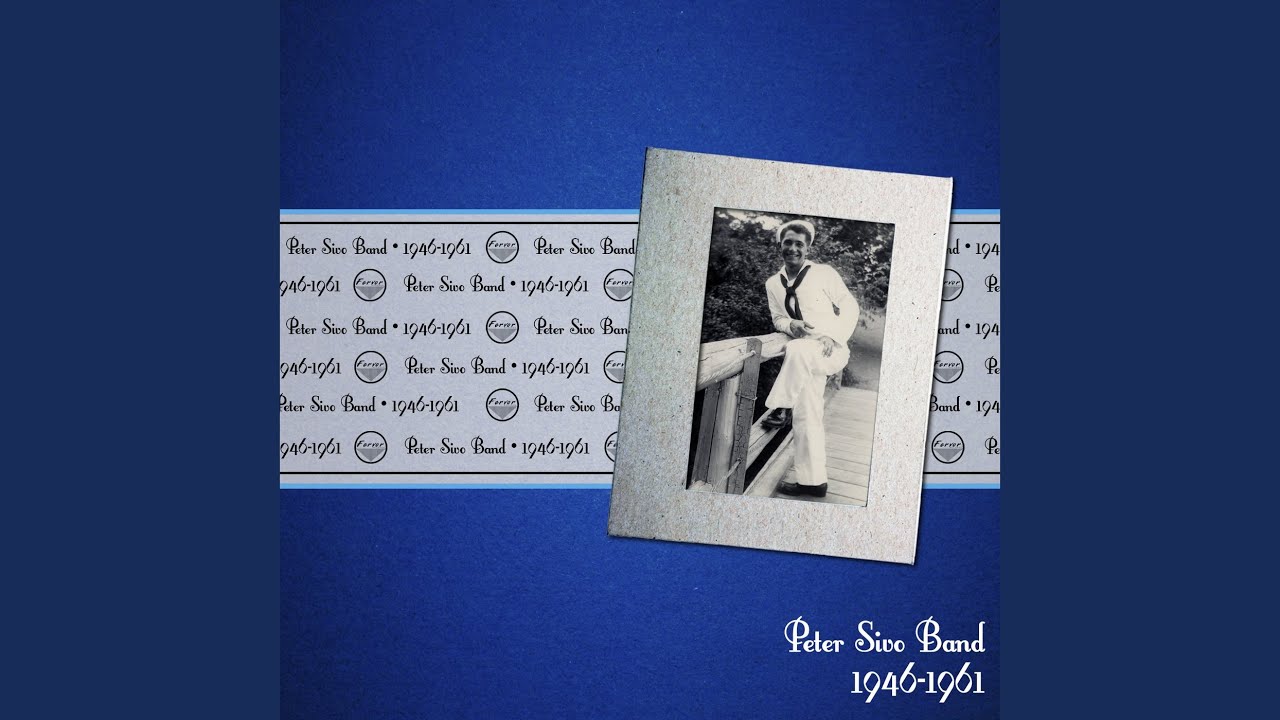 Peter Sivo Band • 1946-1961 Forvor Peter Sivo Band • 194
946-1961 Forvor Peter Sivo Band • 1946-1961 Forvor Pe
Peter Sivo Band • 1946-1961 Forvor Peter Sivo Band • 194
946-1961 Forvor Peter Sivo Band • 1946-1961 Forvor Pe
Peter Sivo Band • 1946-1961 Forvor Peter Sivo Ba Band • 194
946-1961 Forvor Peter Sivo Band • 1946-1961 Forvor Pe
Peter Sivo Band
1946-1961